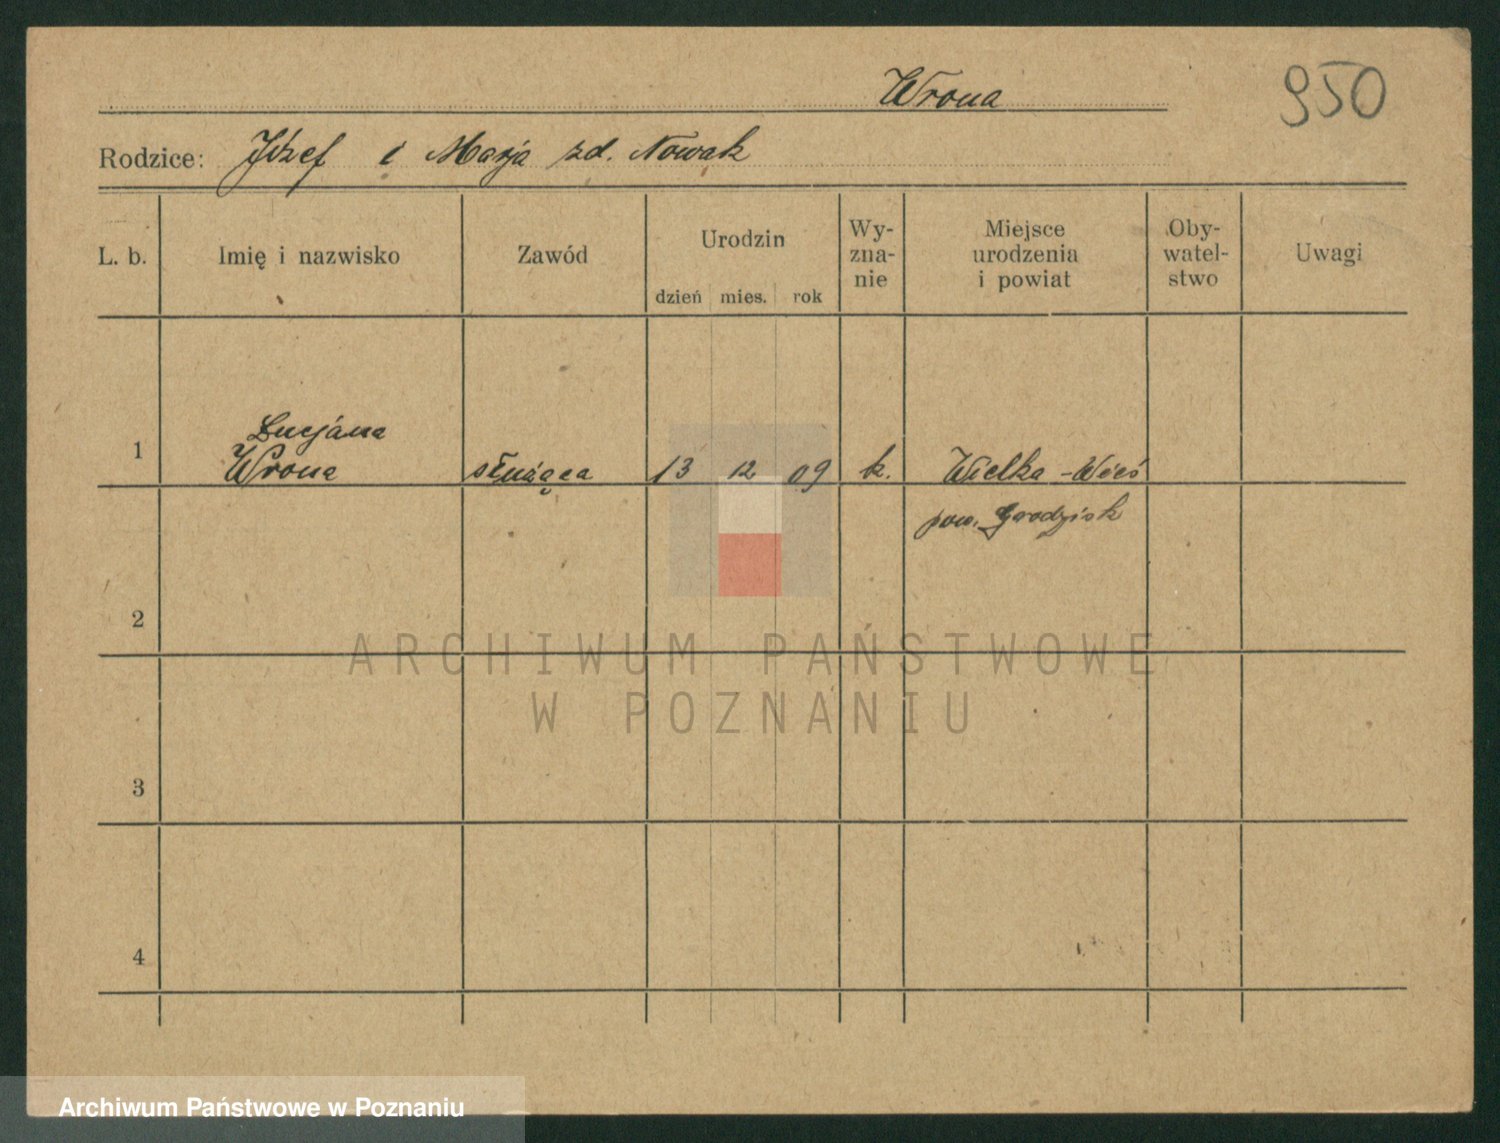 Wrona
950
Rodzice: Józef i Marja zd. Nowak
L. b.
Imię i nazwisko
Zawód
Urodzin
dzień mies. rok
Wy-
zna-
nie
Miejsce
urodzenia
i powiat
Oby-
watel-
stwo
Uwagi
1
Lucjana
Wrona
służąca
13 12 09
k.
Wielka-Wieś
pow. Grodzisk
2
3
4
ARCHIWUM PAŃSTWOWE
W POZNANIU
Archiwum Państwowe w Poznaniu